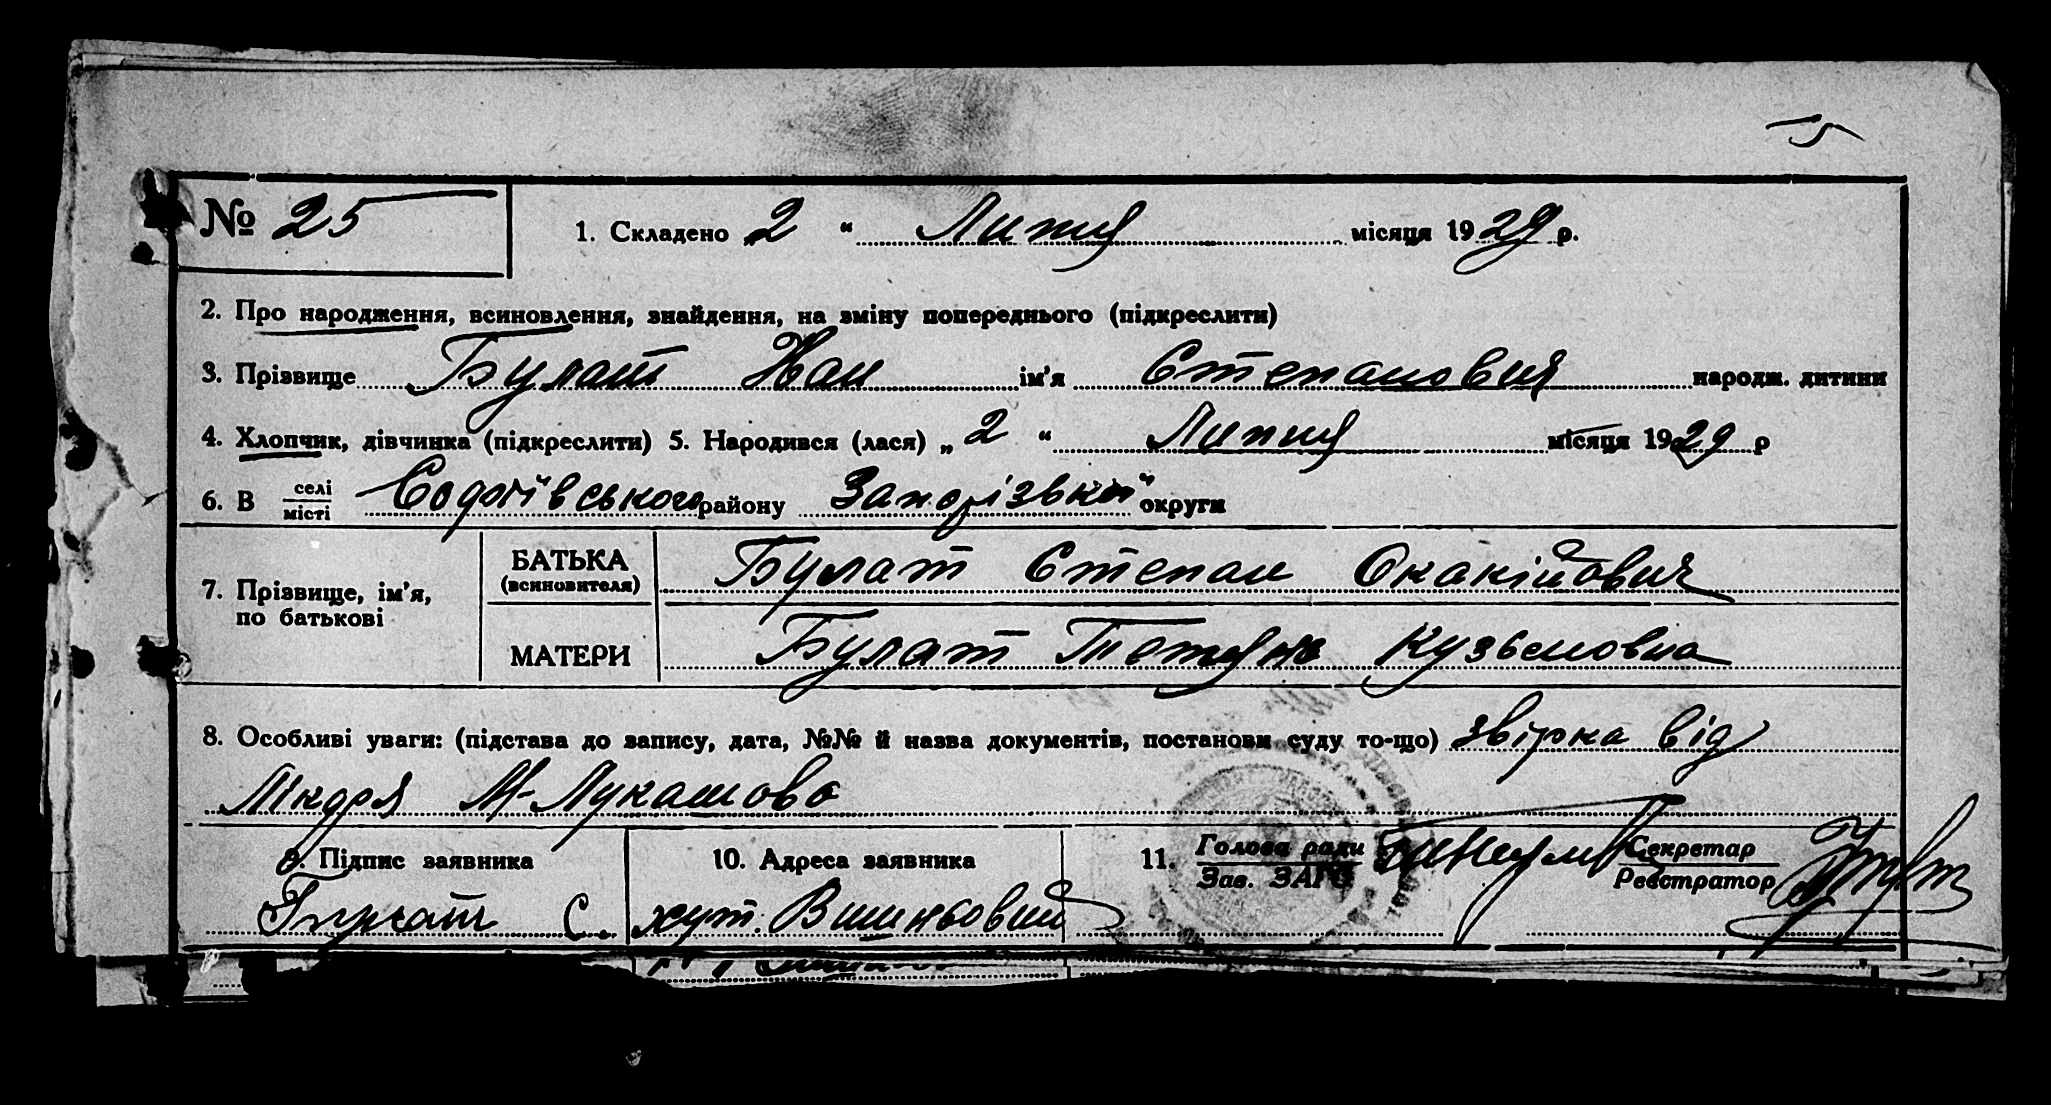 5
№ 25
1. Складено 2 “ Липня місяця 1929 р.
2. Про народження, всиновлення, знайдення, на зміну попереднього (підкреслити)
3. Прізвище Булат Иван ім'я Степанович народж. дитини
4. Хлопчик, дівчинка (підкреслити) 5. Народився (лася) „ 2 “ Липня місяця 1929 р
6. В селі місті Софіївського району Запорізької округи
7. Прізвище, ім'я, по батькові
БАТЬКА (всиновителя) Булат Степан Окакійович
МАТЕРИ Булат Тетяна Кузьмовна
8. Особливі уваги: (підстава до запису, дата, №№ й назва документів, постанови суду то-що) звірка від
Лікаря М-Лукашово
9. Підпис заявника
10. Адреса заявника
11. Голова ради Зав. ЗАГС
Секретар Реєстратор
Булат С.
хут. Вишньовий